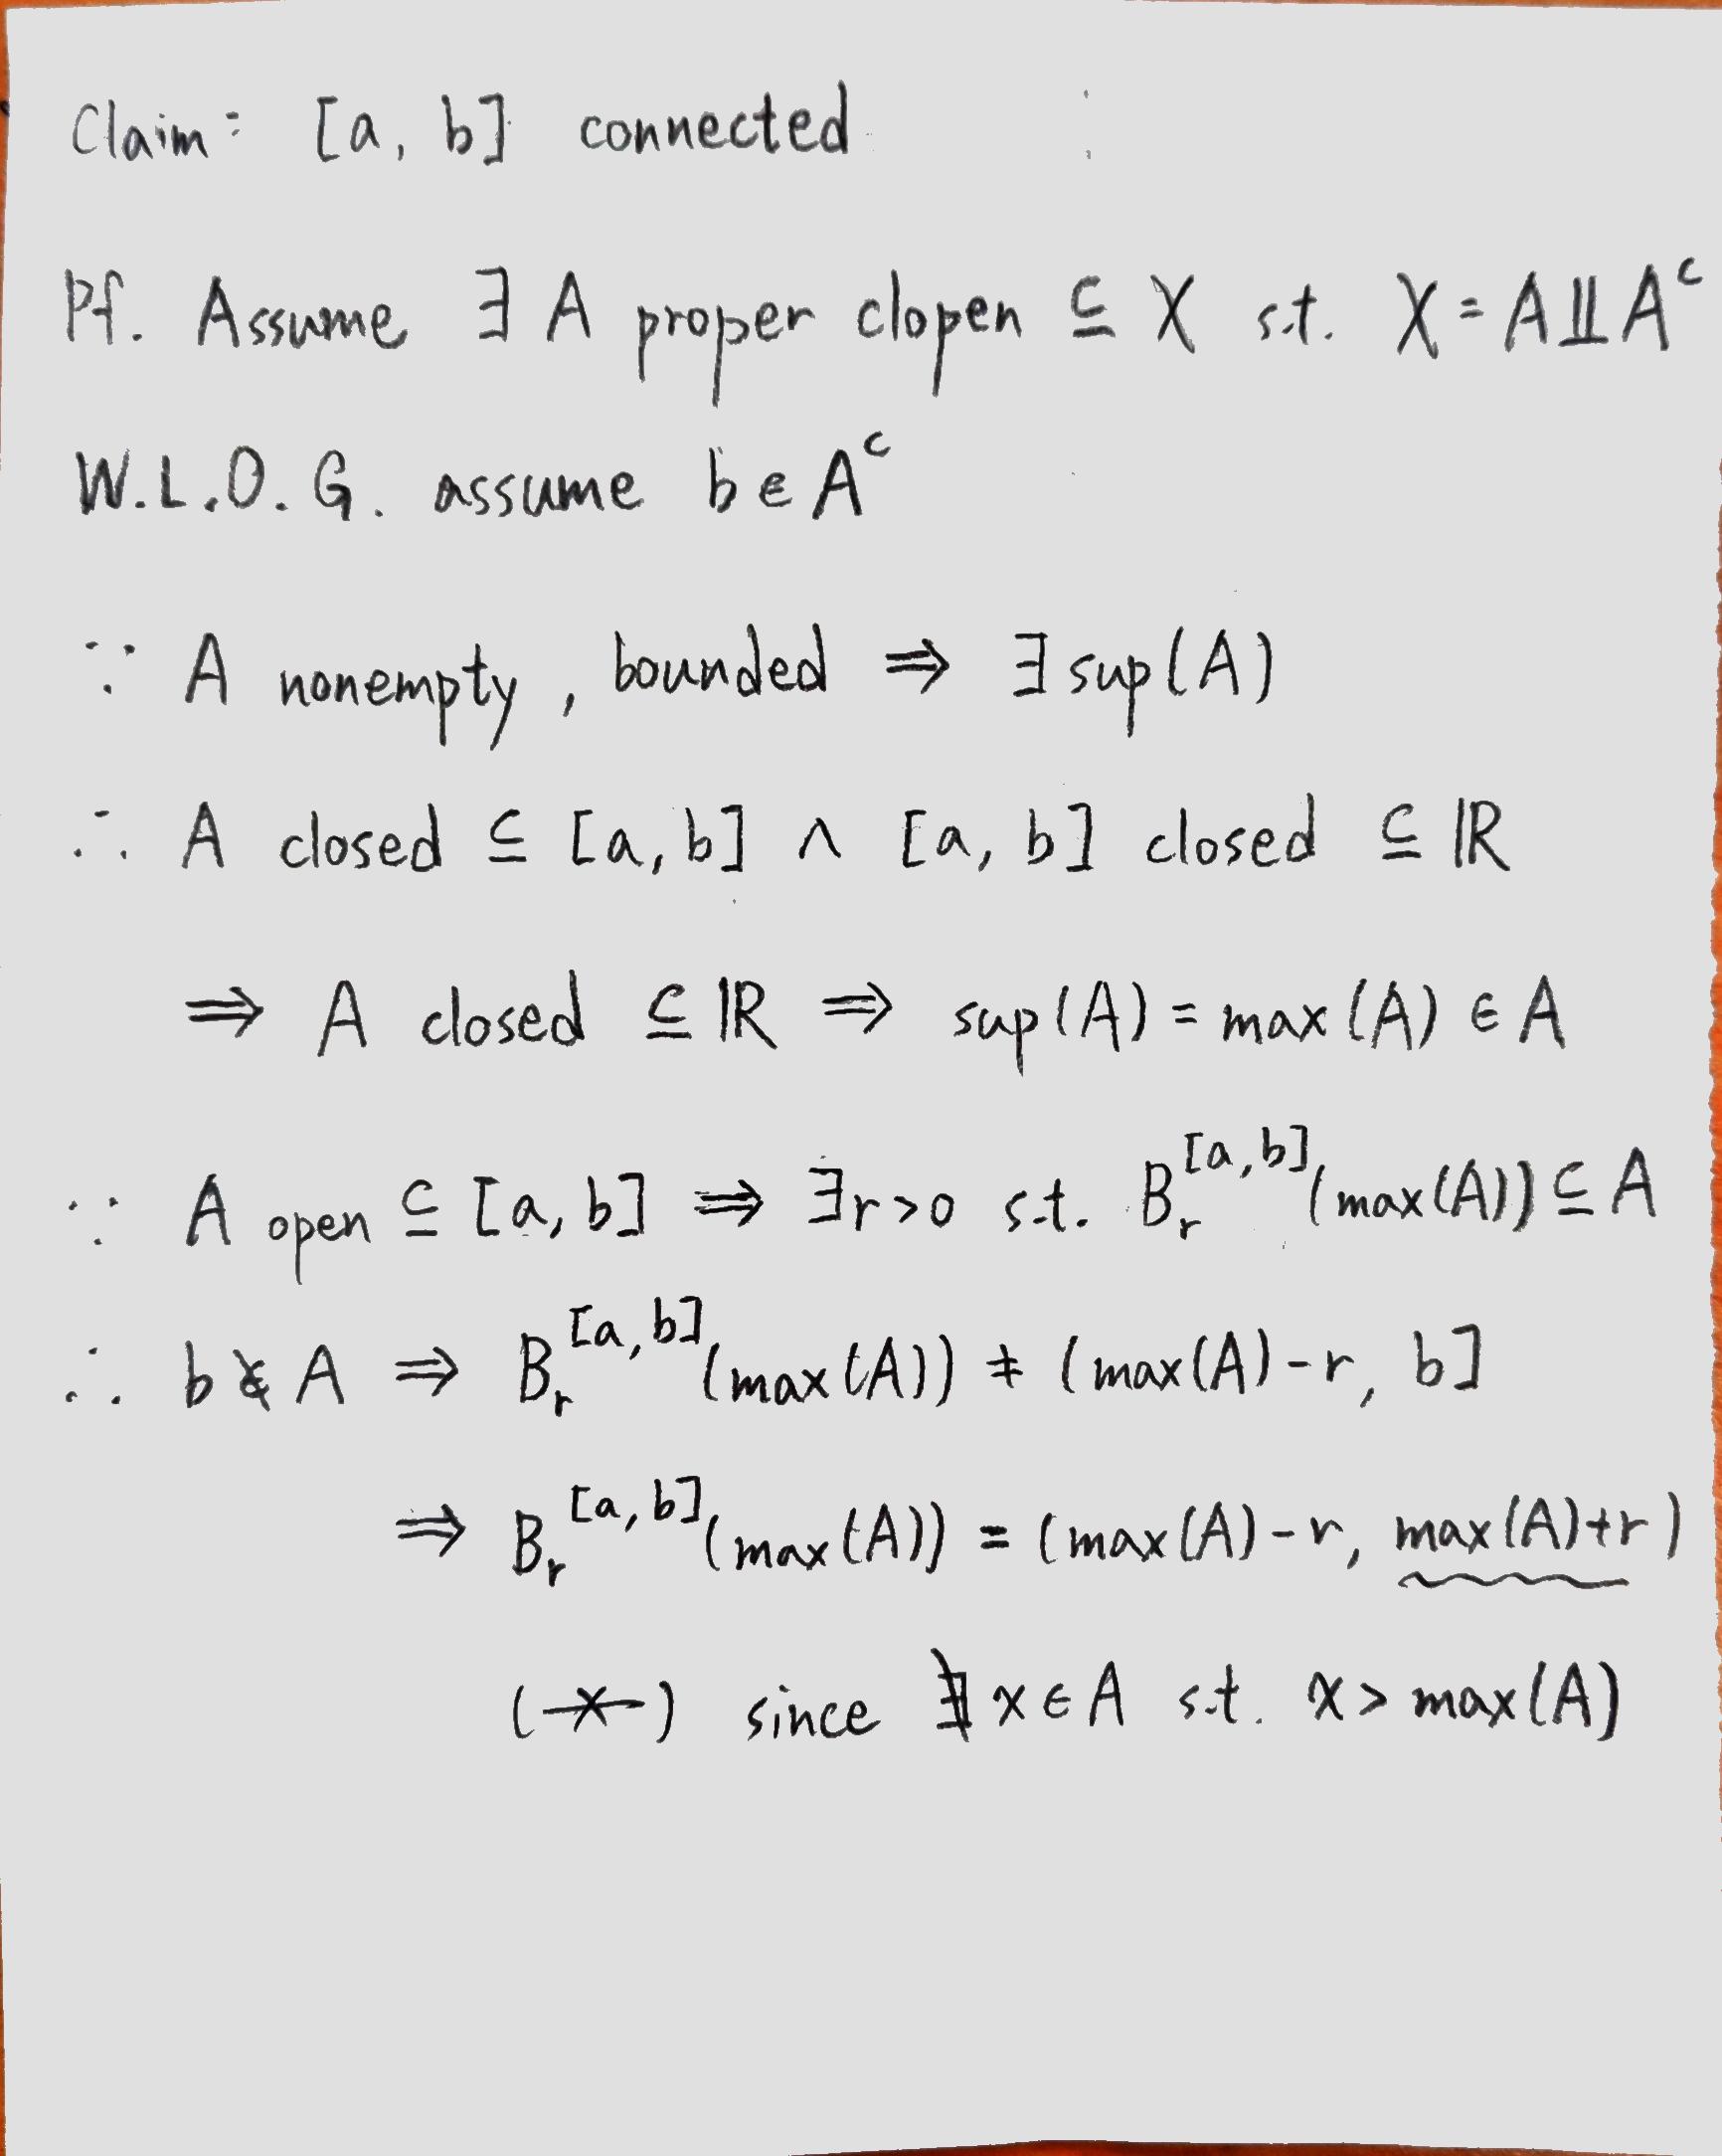 Claim: [a, b] connected
Pf. Assume ∃ A proper clopen ⊆ X s.t. X = A ⨿ Aᶜ
W.L.O.G. assume b ∈ Aᶜ
∵ A nonempty, bounded ⇒ ∃ sup(A)
∴ A closed ⊆ [a, b] ∧ [a, b] closed ⊆ ℝ
⇒ A closed ⊆ ℝ ⇒ sup(A) = max(A) ∈ A
∵ A open ⊆ [a, b] ⇒ ∃r>0 s.t. B_r^[a, b](max(A)) ⊆ A
∴ b ∉ A ⇒ B_r^[a, b](max(A)) ≠ (max(A)-r, b]
⇒ B_r^[a, b](max(A)) = (max(A)-r, max(A)+r)
(-x-) since ∄ x ∈ A s.t. x > max(A)